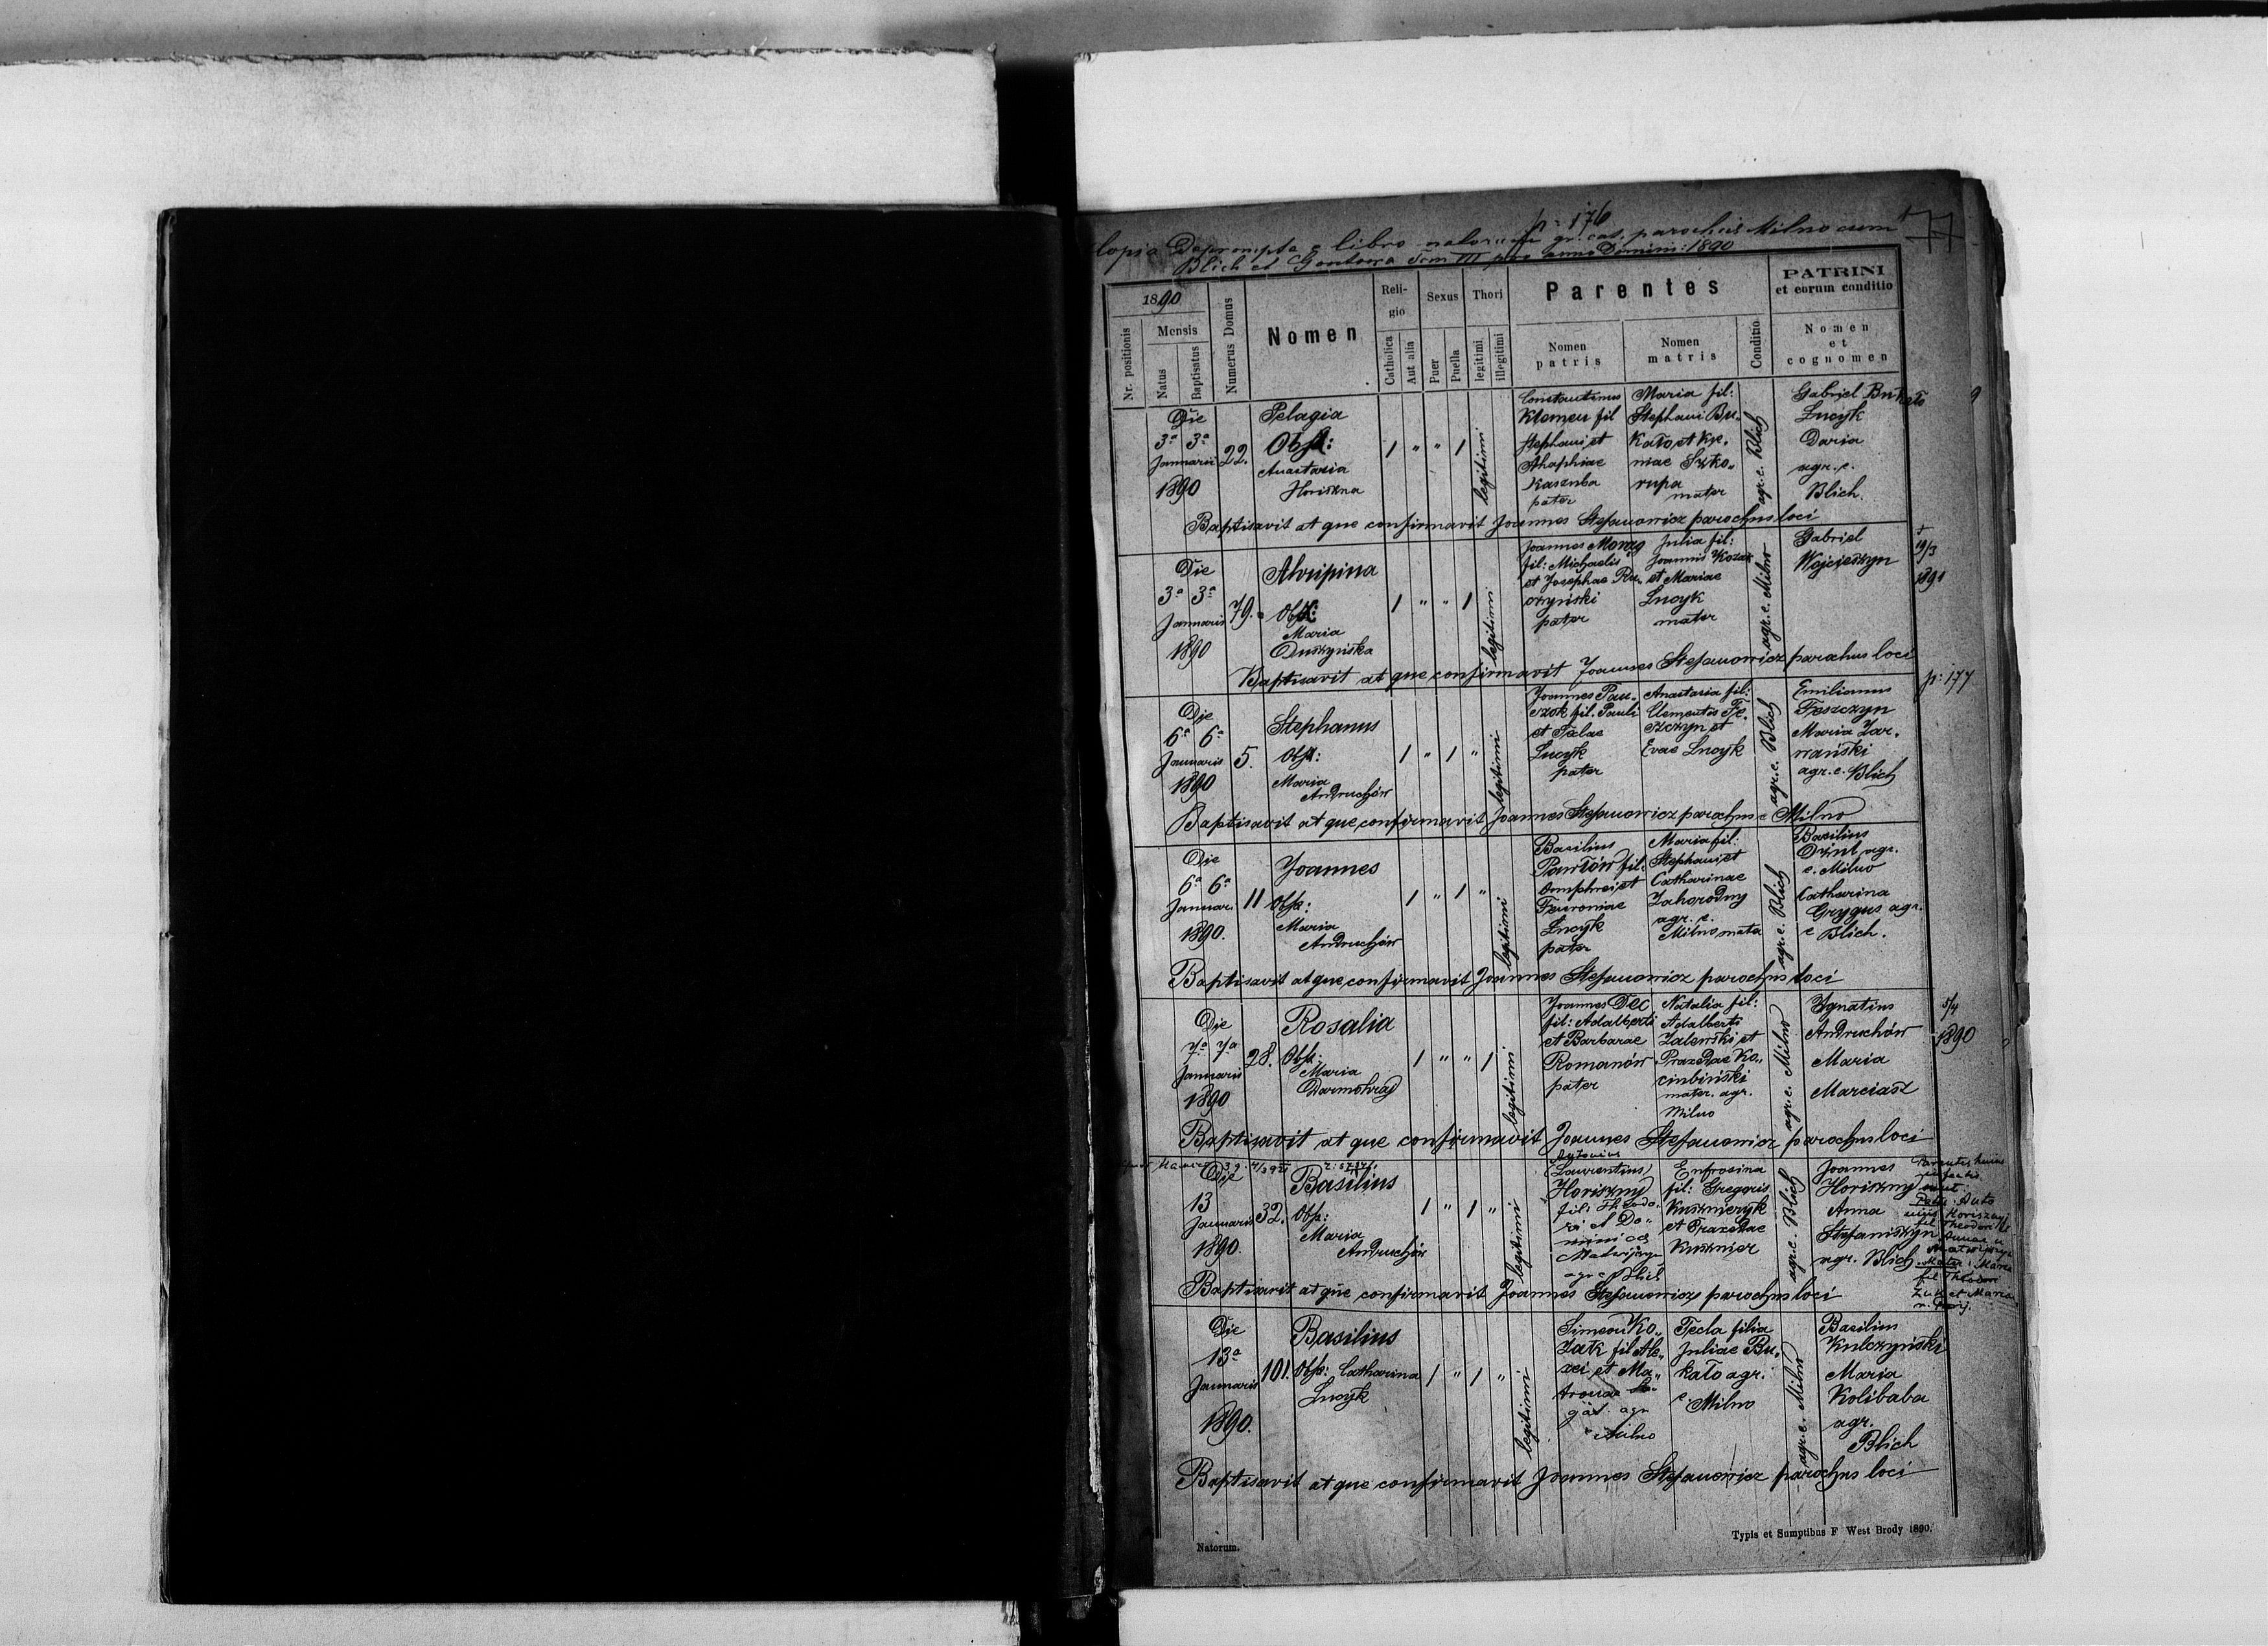 p: 176
77
Copia Deprompta e libro natorum gr. cat. parochiae Milno cum
Blich et Gontowa Tom III pro anno Domini: 1890
1890
Nr. positionis
Mensis
Natus
Baptisatus
Numerus Domus
Nomen
Religio
Catholica
Aut alia
Sexus
Puer
Puella
Thori
legitimi
illegitimi
Parentes
Nomen
patris
Nomen
matris
Conditio
PATRINI
et eorum conditio
Nomen
et
cognomen
Die
3a 3a
Januarii
1890
22.
Pelagia
Obst:
Anastasia
Horiszna
1 " " 1
legitimi
Constantinus
Klomeu fil
Stephani et
Ahaphiae
Kaszuba
pater
Maria fil:
Stephani Bu„
kato et Xe„
niae Szko„
rupa
mater
agr. e. Blich
Gabriel Bukato
Lucyk
Daria
agr. e.
Blich.
Baptisavit at que confirmavit Joannes Stefanowicz parochus loci
Die
3a 3a
Januaris
1890
79.
Alvipina
Obst:
Maria
Duszyńska
1 " " 1
legitimi
Joannes Morag
fil: Michaelis
et Josephae Ru„
czyński
pater
Julia fil:
Joannis Kozak
et Mariae
Lucyk
mater
agr. e. Milno
Gabriel
Wojcieszyn
†
19/3
1891
Baptisavit at que confirmavit Joannes Stefanowicz parochus loci
p: 177
Die
6a 6a
Januaris
1890
5.
Stephanus
Obst:
Maria
Andruchów
1 " 1 "
legitimi
Joannes Pau„
szok fil. Pauli
et Teclae
Lucyk
pater
Anastasia fil:
Clementis Fe„
szczyn et
Evae Lucyk
agr. e. Blich
Emilianus
Feszczyn
Maria Zar„
wański
agr. e. Blich
Baptisavit at que confirmavit Joannes Stefanowicz parochus e Milno
Die
6a 6a
Januar.
1890.
11
Joannes
Obst:
Maria
Andruchów
1 " 1 "
legitimi
Basilius
Pawłów fil:
Omphrei et
Fevroniae
Lucyk
pater
Maria fil.
Stephani et
Catharinae
Zahorodny
agr. e.
Milno mata
agr. e. Blich
Basilius
Dziut agr.
e. Milno
Catharina
Grygus agr.
e Blich.
Baptisavit at que confirmavit Joannes Stefanowicz parochus loci
Die
7a 7a
Januaris
1890
28.
Rosalia
Obst:
Maria
Darmohrad
1 " " 1
legitimi
Joannes Dec
fil: Adalberti
et Barbarae
Romanów
pater
Natalia fil:
Adalberti
Zalewski et
Praxedae Ko„
cinbiński
mater. agr.
Milno
agr. e. Milno
Ignatius
Andruchów
Maria
Marciasz
5/4
1890
Baptisavit at que confirmavit Joannes Stefanowicz parochus loci
Die
13
Januaris
1890.
32.
Basilius
Obst:
Maria
Andruchów
1 " 1 "
legitimi
Antonius
(Laurentius)
Horiszny
fil: Theodo„
ri et Do„
Matwijczyn
agr e Blich
Eufrosina
fil: Gregoris
Kuszneryk
et Praxedae
Kusznier
agr. e. Blich
Joannes
Horiszny
Anna
Stefaniszyn
agr. Blich.
Parentes huius
infantis
sunt:
Pater: Anto
nius Horiszny
fil Theodori et
Annae n.
Matwijczyn
Mater: Maria
fil Theodori
Zuk et Maria
Baptisavit at que confirmavit Joannes Stefanowicz parochus loci
Die
13a
Januaris
1890.
101.
Basilius
Obst: Catharina
Lucyk
1 " 1 "
legitimi
Simeon Ko„
zak fil Ale„
xei et Ma„
tronae
agr
e Milno
Tecla filia
Juliae Bu„
kato agr.
e Milno
agr. e. Milno
Basilius
Kulczyński
Maria
Kolibaba
agr.
Blich
Baptisavit at que confirmavit Joannes Stefanowicz parochus loci
Natorum.
Typis et Sumptibus F West Brody 1890.